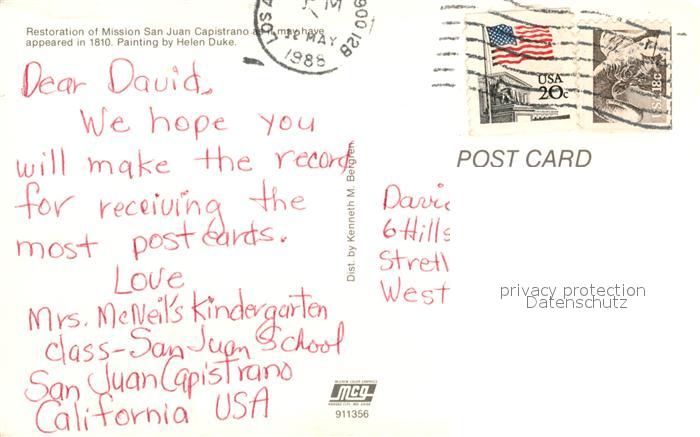 Restoration of Mission San Juan Capistrano as it may have
appeared in 1810. Painting by Helen Duke.
LOS A
PM
MAY
1988
900 128
USA
20c
USA 18c
Dear David,
We hope you
will make the record
for receiving the
most postcards.
Love
Mrs. McNeil's Kindergarten
class-San Juan School
San Juan Capistrano
California USA
Dist. by Kenneth M. Bergren
POST CARD
Davi
6 Hills
Stret
West
privacy protection
Datenschutz
MCG
911356